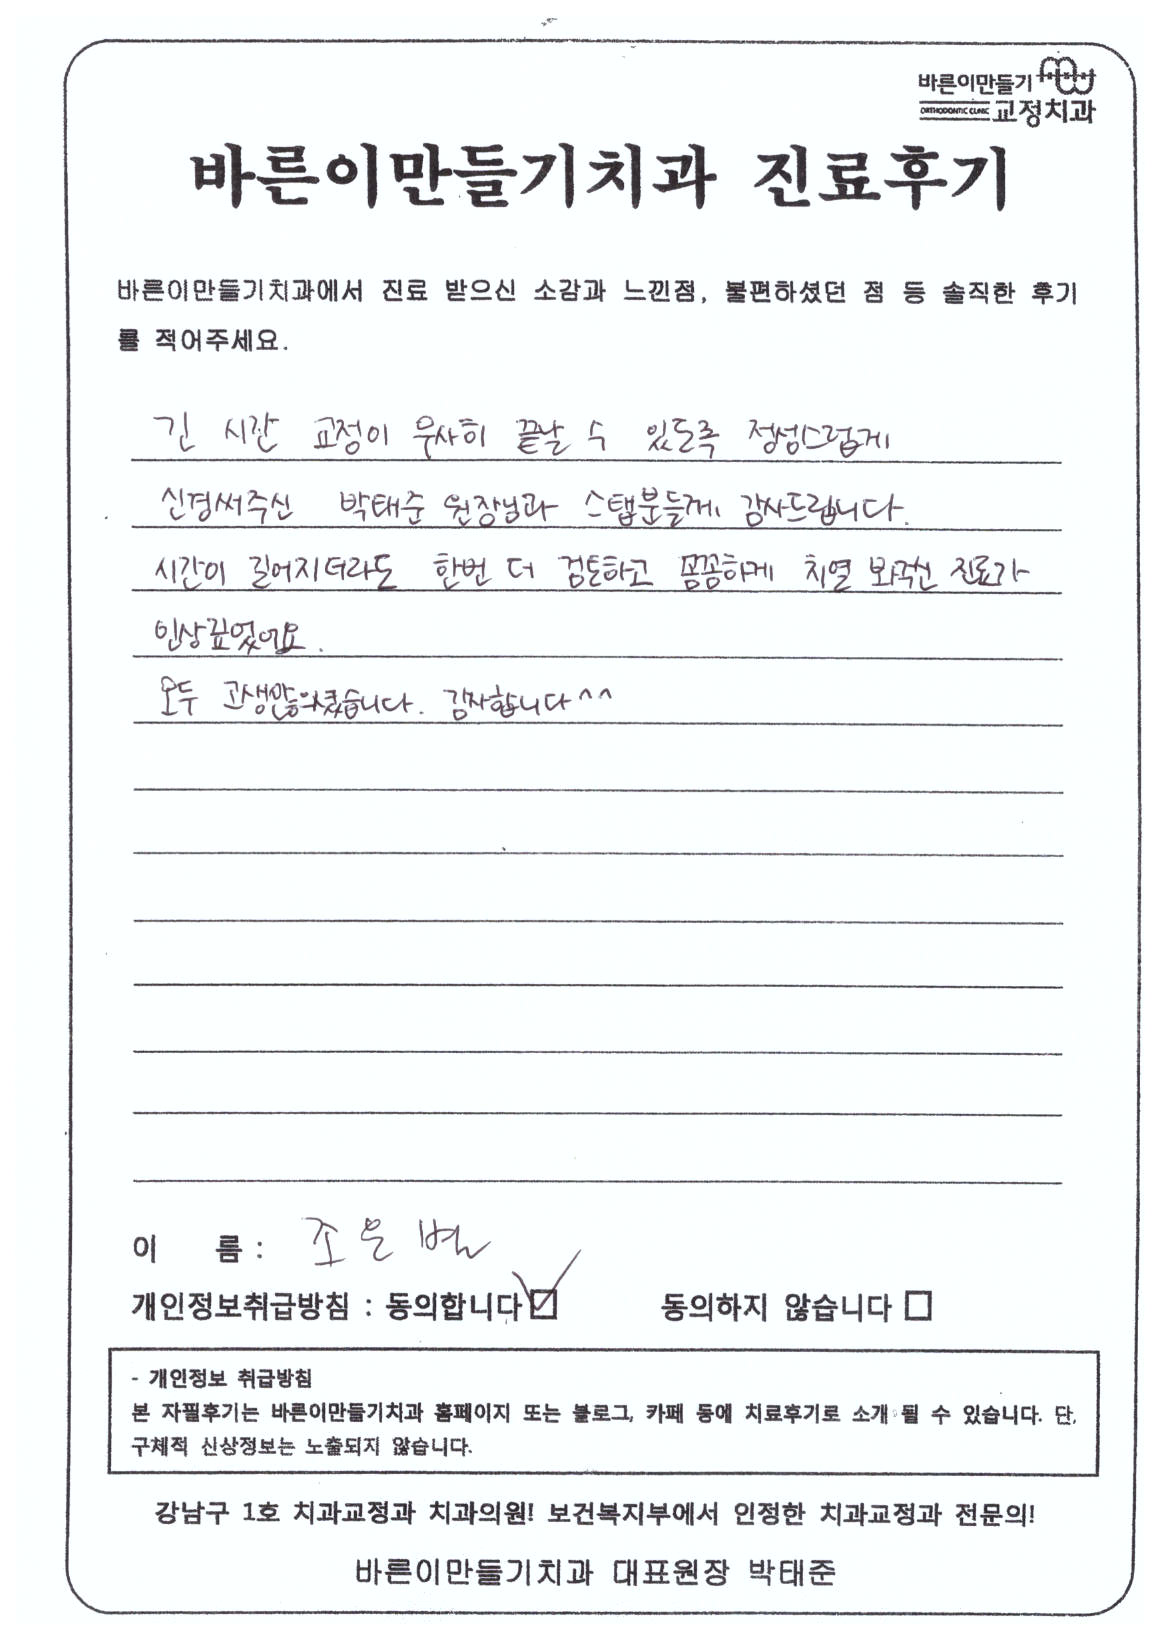 바른이만들기
ORTHODONTIC CLINIC 교정치과
바른이만들기치과 진료후기
바른이만들기치과에서 진료 받으신 소감과 느낀점, 불편하셨던 점 등 솔직한 후기
를 적어주세요.
긴 시간 교정이 무사히 끝날 수 있도록 정성스럽게
신경써주신 박태준 원장님과 스탭분들께 감사드립니다.
시간이 길어지더라도 한번 더 검토하고 꼼꼼하게 치열 봐주신 진료가
인상깊었어요.
모두 고생많으셨습니다. 감사합니다^^
이 름 : 조은별
개인정보취급방침 : 동의합니다 ☑ 동의하지 않습니다 □
- 개인정보 취급방침
본 자필후기는 바른이만들기치과 홈페이지 또는 블로그, 카페 등에 치료후기로 소개 될 수 있습니다. 단,
구체적 신상정보는 노출되지 않습니다.
강남구 1호 치과교정과 치과의원! 보건복지부에서 인정한 치과교정과 전문의!
바른이만들기치과 대표원장 박태준